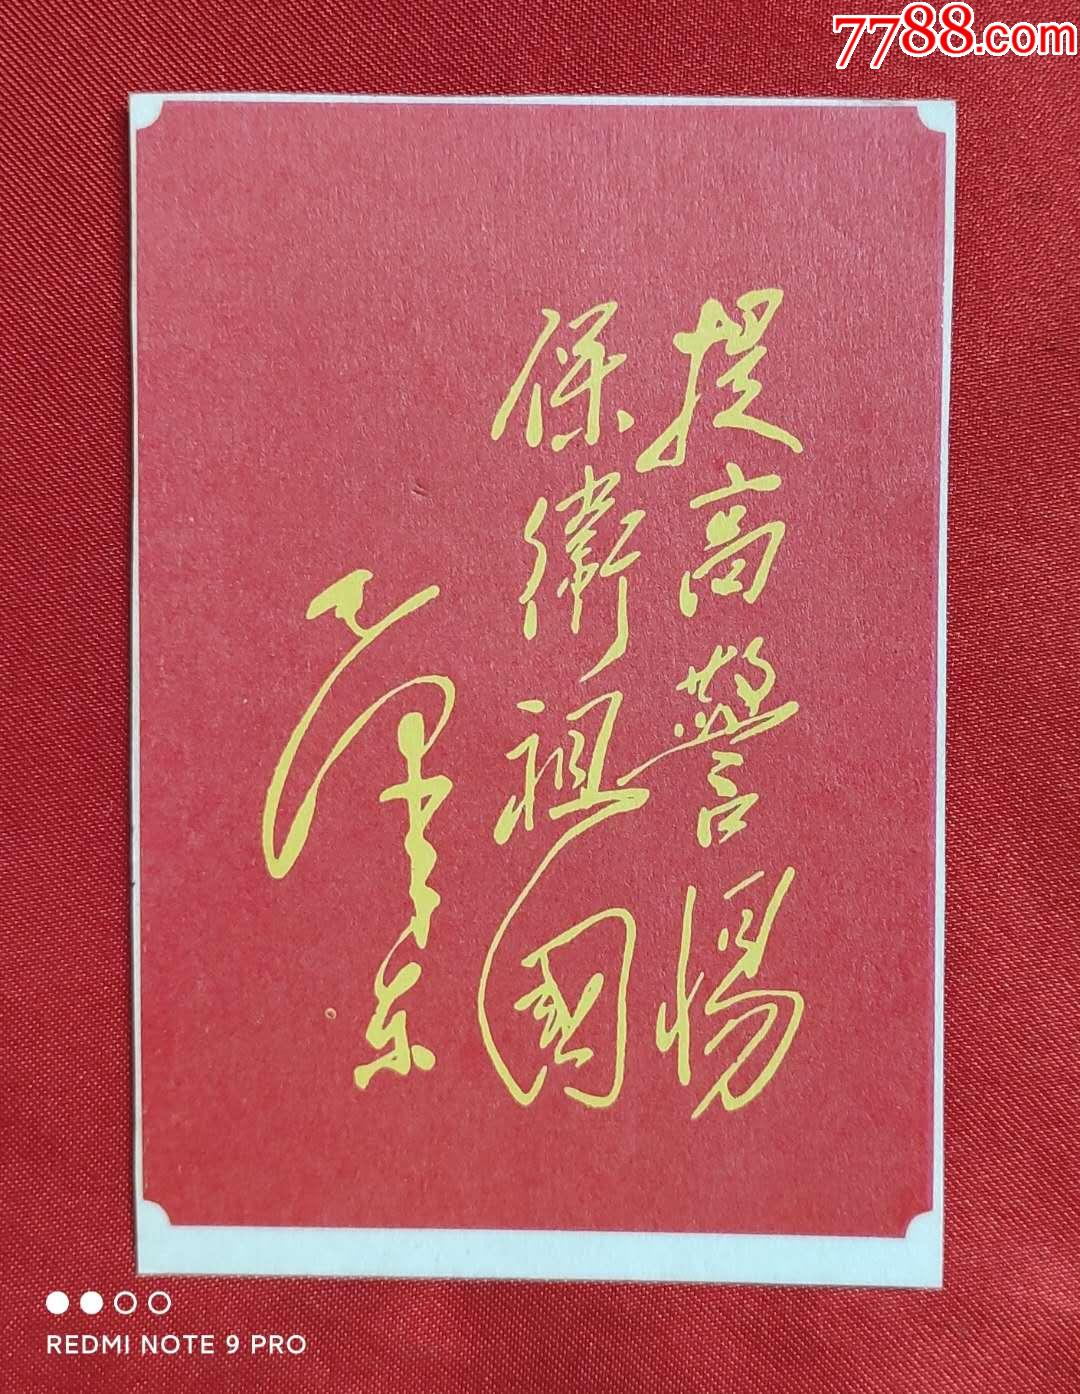 7788.com
提高警惕
保衛祖國
毛澤东
REDMI NOTE 9 PRO